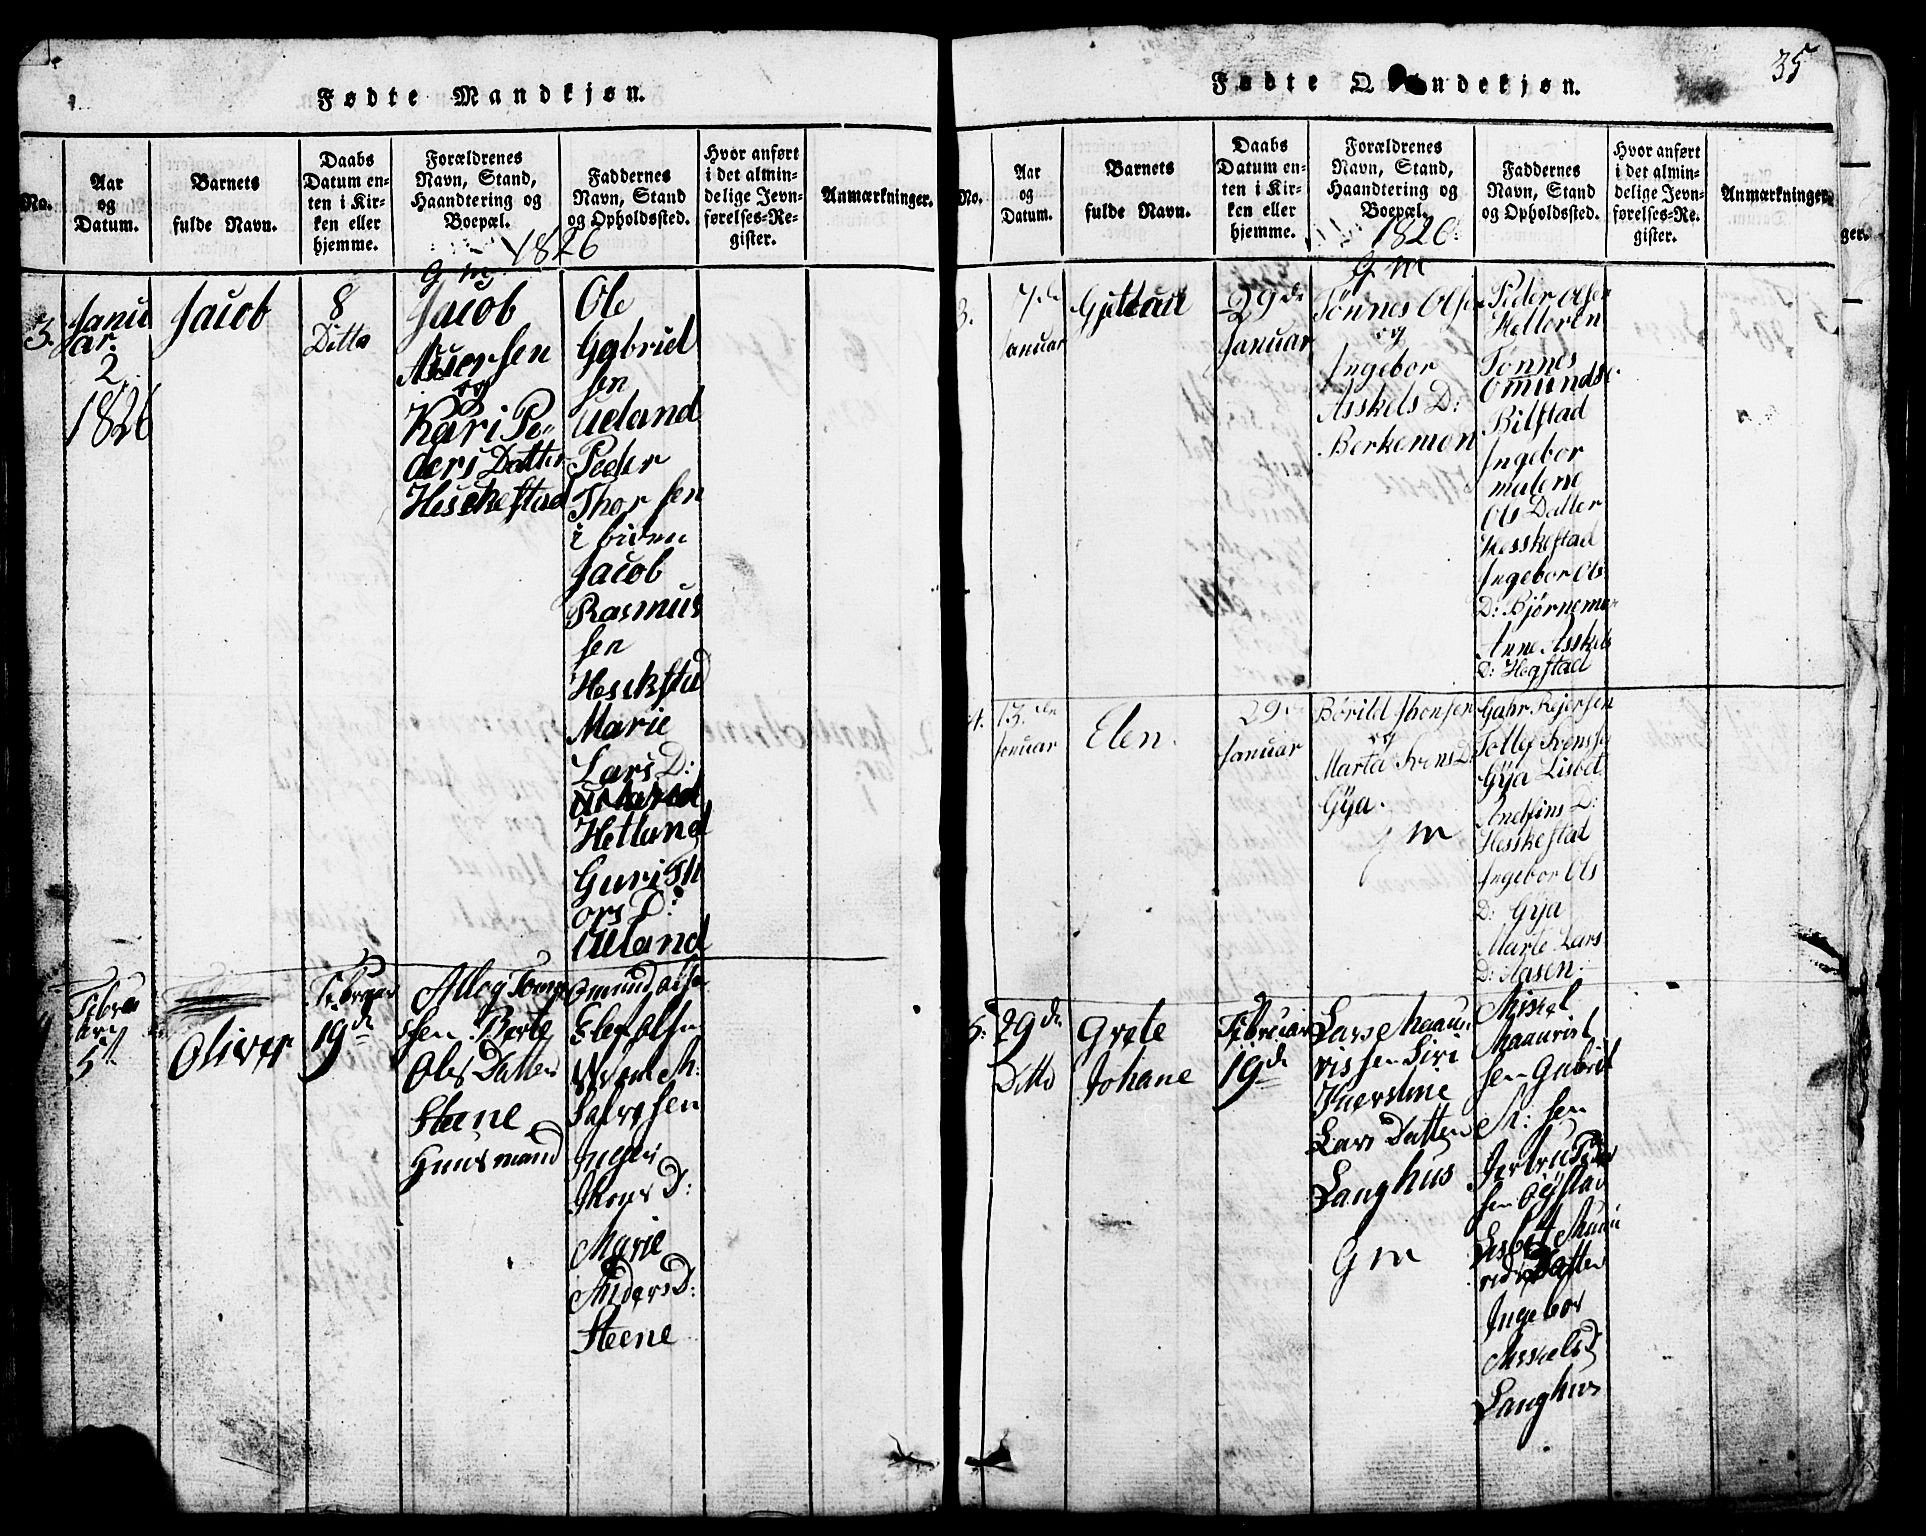 Fødte Mandkjøn.
No.
Aar
og
Datum.
Barnets
fulde Navn.
Daabs
Datum en-
ten i Kir-
ken eller
hjemme.
Forældrenes
Navn, Stand,
Haandtering og
Boepæl.
Faddernes
Navn, Stand
og Opholdssted.
Hvor anført
i det almin-
delige Jevn-
førelses-Re-
gister.
Anmærkninger.
1826
3.
Janu
ar.
2
1826
Jacob
8
Ditto
G m
Jacob
Assersen
og
Kari Pe-
ders Datter
Heschestad
Ole
Gabriel
sen
Ueland
Peder
Thorsen
i
Jacob
Rasmus
sen
Heskstad
Marie
Lars D:
Hetland
Guri Th
ors D:
Ueland
Februa
ari
5te
Oliver
Februar
19de
sen Berte
Ols Datter
Steene
Omund Olsen
Elef Olsen
sen
D:
Marie
Anders D:
Steene
Fødte Qvindekjøn.
35
No.
Aar
og
Datum.
Barnets
fulde Navn.
Daabs
Datum en-
ten i Kir-
ken eller
hjemme.
Forældrenes
Navn, Stand,
Haandtering og
Boepæl.
Faddernes
Navn, Stand
og Opholdssted.
Hvor anført
i det almin-
delige Jevn-
førelses-Re-
gister.
Anmærkninger.
ger.
1826
3.
7de
Januar
29de
Januar
G m
Tønnes Olsen
og
Ingebor
Asskels D:
Berkemon
Peder Olsen
Helleren
Tønnes
Omunds
Bilstad
Ingebor
malene
Ols Datter
Hesskestad
Ingebor Ols
D: Bjørnemo
Anne Asskels
D: Hegstad
4.
13den
Januar
Elen.
29de
Januar
Børild Thorsen
og
Marta Svens D:
Gya.
G m
Gahr Rejersen
Tollef Svensen
Gya Lisbet
D:
Hesskestad
Ingebor Ols
D: Gya
Marte Lars
D: Aasen.
5.
29de
Ditto
Grete
Johane
Februar
19de
Lars Mauu-
rissen Siri
Kierstine
Lars Datter
Langhus
G m
Missel
Mauuris
sen Gabriel
M: sen
sen Øystad
Lisbet Mauu
ris Datter
Ingebor
Asskels D
Langhus